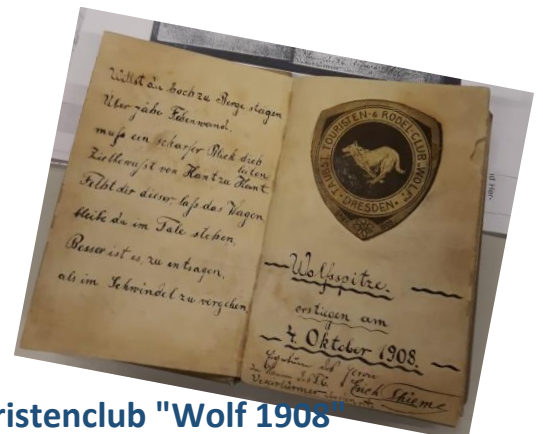 Willst du hoch zu Berge steigen
Über jähe Felsenwand,
muß ein scharfer Blick dich
leiten
Zielbewußt von Kant zu Kant
Fehlt dir dieser, laß das Wagen
bleibe du im Tale stehen,
Besser ist es, zu entsagen,
als im Schwindel zu vergehen
TAUBST. TOURISTEN- & RODELCLUB "WOLF"
• DRESDEN •
Wolfsspitze.
erstiegen am
4. Oktober 1908.
Erich Thieme
ristenclub "Wolf 1908"